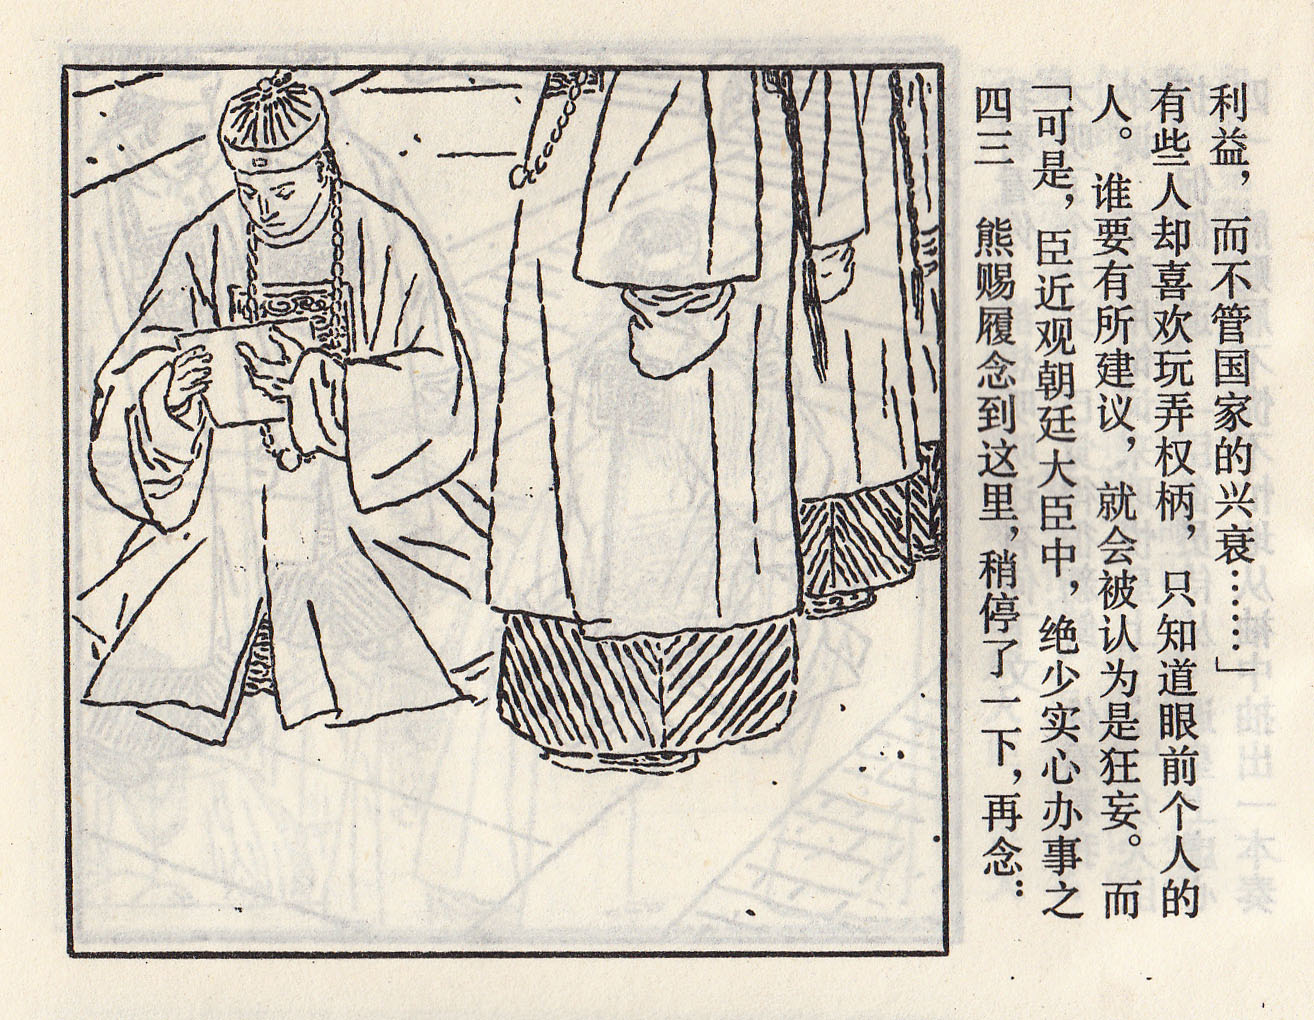 四三　熊赐履念到这里，稍停了一下，再念：
「可是，臣近观朝廷大臣中，绝少实心办事之
人。谁要有所建议，就会被认为是狂妄。而
有些人却喜欢玩弄权柄，只知道眼前个人的
利益，而不管国家的兴衰……」